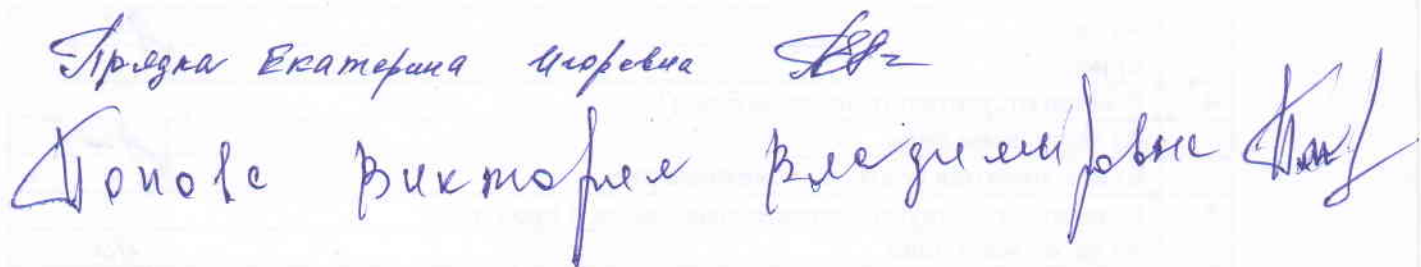 Прядка Екатерина Игоревна
Попова Виктория Владимировна